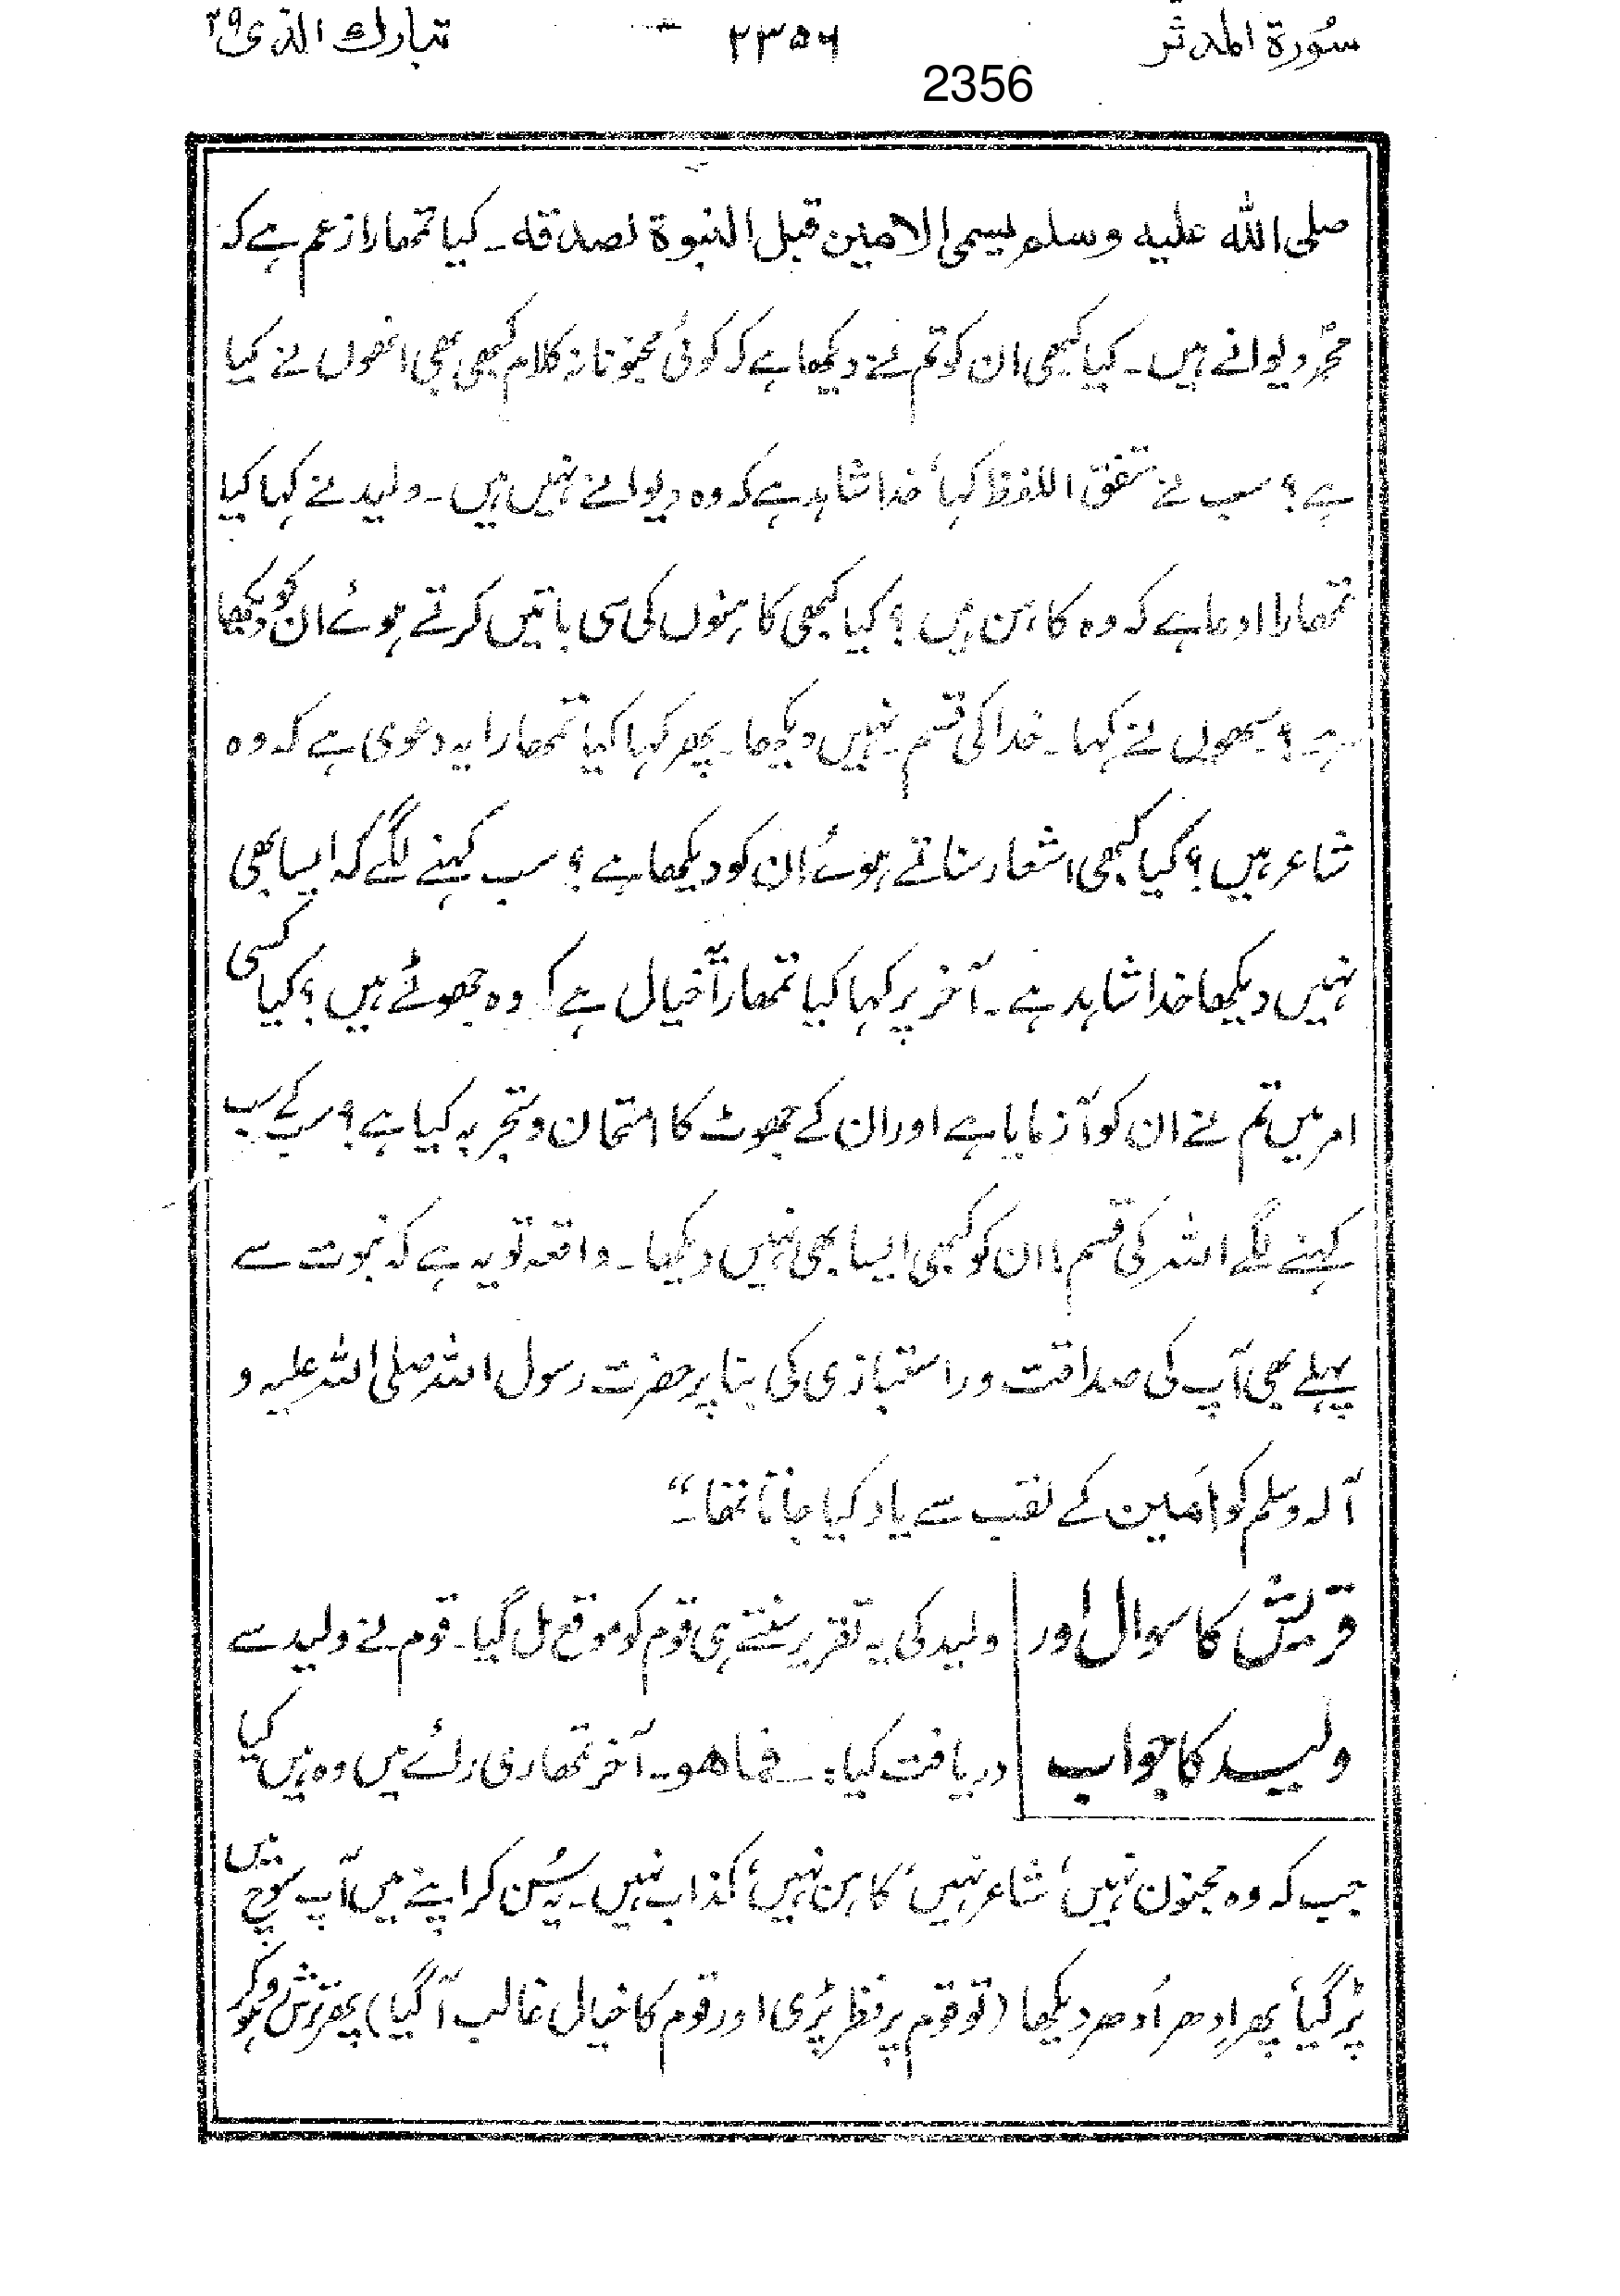 سُورۃ المدثّر ۲۳۵۶ تبارك الذی ۲۹
2356
صلی الله علیه وسلم یسمی الامین قبل النبوة لصدقه۔ کیا تمھارا زعم ہے کہ
محمدؐ دیوانے ہیں۔ کیا کبھی ان کو تم نے دیکھا ہے کہ کوئی مجنونانہ کلام کبھی بھی انھوں نے کیا
ہے؟ سب نے متفق اللفظ کہا، خدا شاہد ہے کہ وہ دیوانے نہیں ہیں۔ ولید نے کہا کیا
تمھارا ادعا ہے کہ وہ کاہن ہیں؟ کیا کبھی کاہنوں کی سی باتیں کرتے ہوئے ان کو دیکھا
ہے؟ سبھوں نے کہا۔ خدا کی قسم نہیں دیکھا۔ پھر کہا کیا تمھارا یہ دعوی ہے کہ وہ
شاعر ہیں؟ کیا کبھی اشعار سناتے ہوئے ان کو دیکھا ہے؟ سب کہنے لگے کہ ایسا بھی
نہیں دیکھا خدا شاہد ہے۔ آخر پر کہا کیا تمھارا یہ خیال ہے کہ وہ جھوٹے ہیں؟ کیا کسی
امر میں تم نے ان کو آزمایا ہے اور ان کے جھوٹ کا امتحان و تجربہ کیا ہے؟ سب کے سب
کہنے لگے اللہ کی قسم! ان کو کبھی ایسا بھی نہیں دیکھا۔ واقعہ تو یہ ہے کہ نبوت سے
پہلے بھی آپ کی صداقت و راستبازی کی بنا پر حضرت رسول اللہ صلی اللہ علیہ و
آلہ وسلم کو امین کے لقب سے یاد کیا جاتا تھا۔“
قریش کا سوال اور ولید کی یہ تقریر سنتے ہی قوم کو موقع مل گیا۔ قوم نے ولید سے
ولید کا جواب دریافت کیا:۔ فماھو۔ آخر تمھاری رائے میں وہ ہیں کیا
جب کہ وہ مجنون نہیں، شاعر نہیں، کاہن نہیں، کذاب نہیں۔ یہ سُن کر اپنے میں آپ سوچ میں
پڑ گیا، پھر اِدھر اُدھر دیکھا (تو قوم پر نظر پڑی اور قوم کا خیال غالب آگیا) پھر ترش رو ہو کر